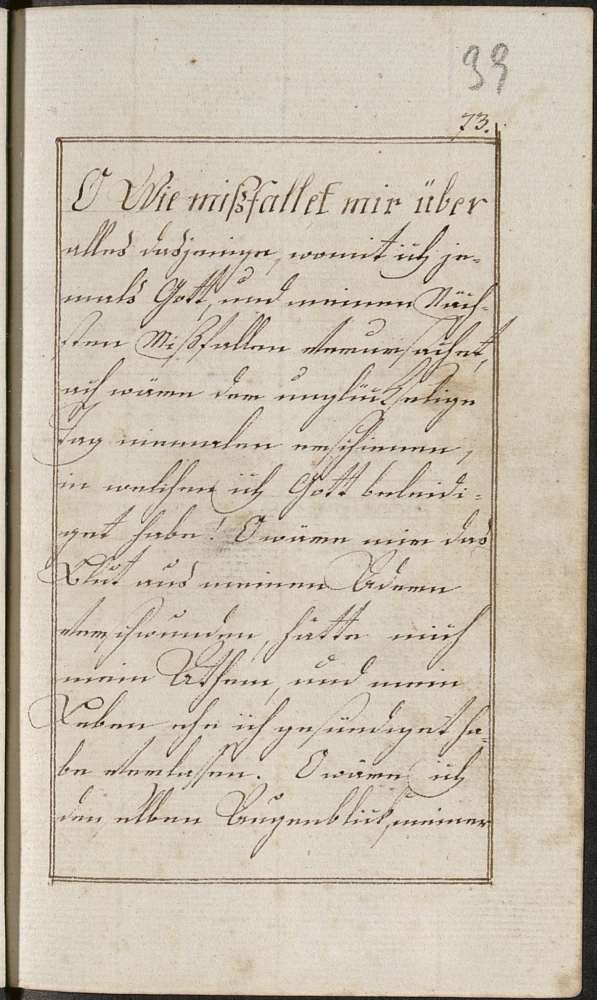 39
73.
O Wie mißfallet mir über
alles dasjenige, womit ich je-
mals Gott, und meinen Näch-
sten Mißfallen verursachet,
ach wäre der unglückselige
Tag niemalen erschienen,
in welchen ich Gott beleidi-
get habe! O wäre mir das
Blut aus meinen Adern
verschwunden, hätte mich
mein Athem, und mein
Leben ehe ich gesündiget ha-
be verlassen. O wäre ich
den selben Augenblick, meiner